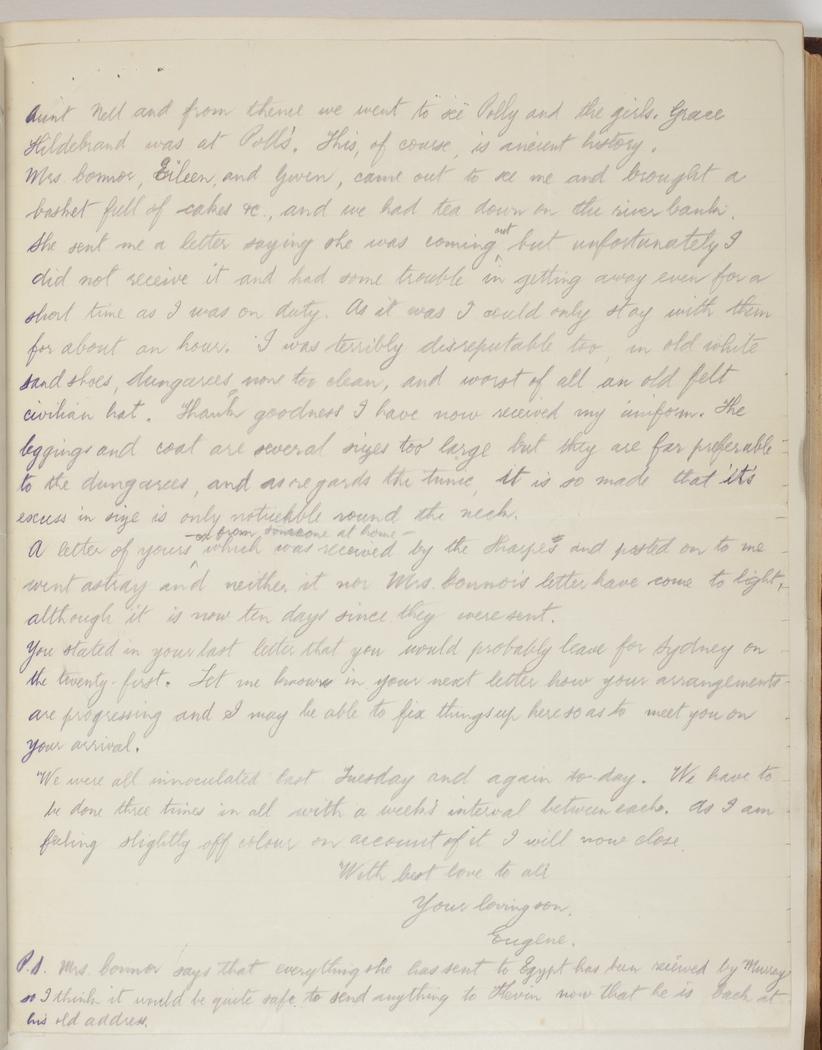 Aunt Nell and from thence we went to see Polly and the girls. Grace
Hildebrand was at Poll's. This, of course, is ancient history.
Mrs. Connor, Eileen, and Gwen, came out to see me and brought a
basket full of cakes &c., and we had tea down on the river bank.
She sent me a letter saying she was coming out but unfortunately I
did not receive it and had some trouble in getting away even for a
short time as I was on duty. As it was I could only stay with them
for about an hour. I was terribly disreputable too, in old white
sand shoes, dungarees none too clean, and worst of all an old felt
civilian hat. Thank goodness I have now received my uniform. The
leggings and coat are several sizes too large but they are far preferable
to the dungarees, and as regards the tunic, it is so made that it's
excess in size is only noticeable round the neck.
- or from someone at home -
A letter of yours which was received by the Sharpe's and posted on to me
went astray and neither it nor Mrs. Connors letter have come to light,
although it is now ten days since they were sent.
You stated in your last letter that you would probably leave for Sydney on
the twenty-first. Let me know in your next letter how your arrangements
are progressing and I may be able to fix things up here so as to meet you on
your arrival.
We were all innoculated last Tuesday and again to-day. We have to
be done three times in all with a week's interval between each. As I am
feeling slightly off colour on account of it I will now close.
With best love to all
Your loving son,
Eugene.
P.S. Mrs. Connor says that everything she has sent to Egypt has been received by Murray
so I think it would be quite safe to send anything to now that he is back at
his old address.